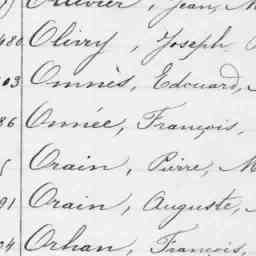 Ollivier, Jean, M
480 Olivry, Joseph,
03 Omnès, Edouard,
86 Onnée, François,
Orain, Pierre, M
91 Orain, Auguste,
04 Orhan, François,